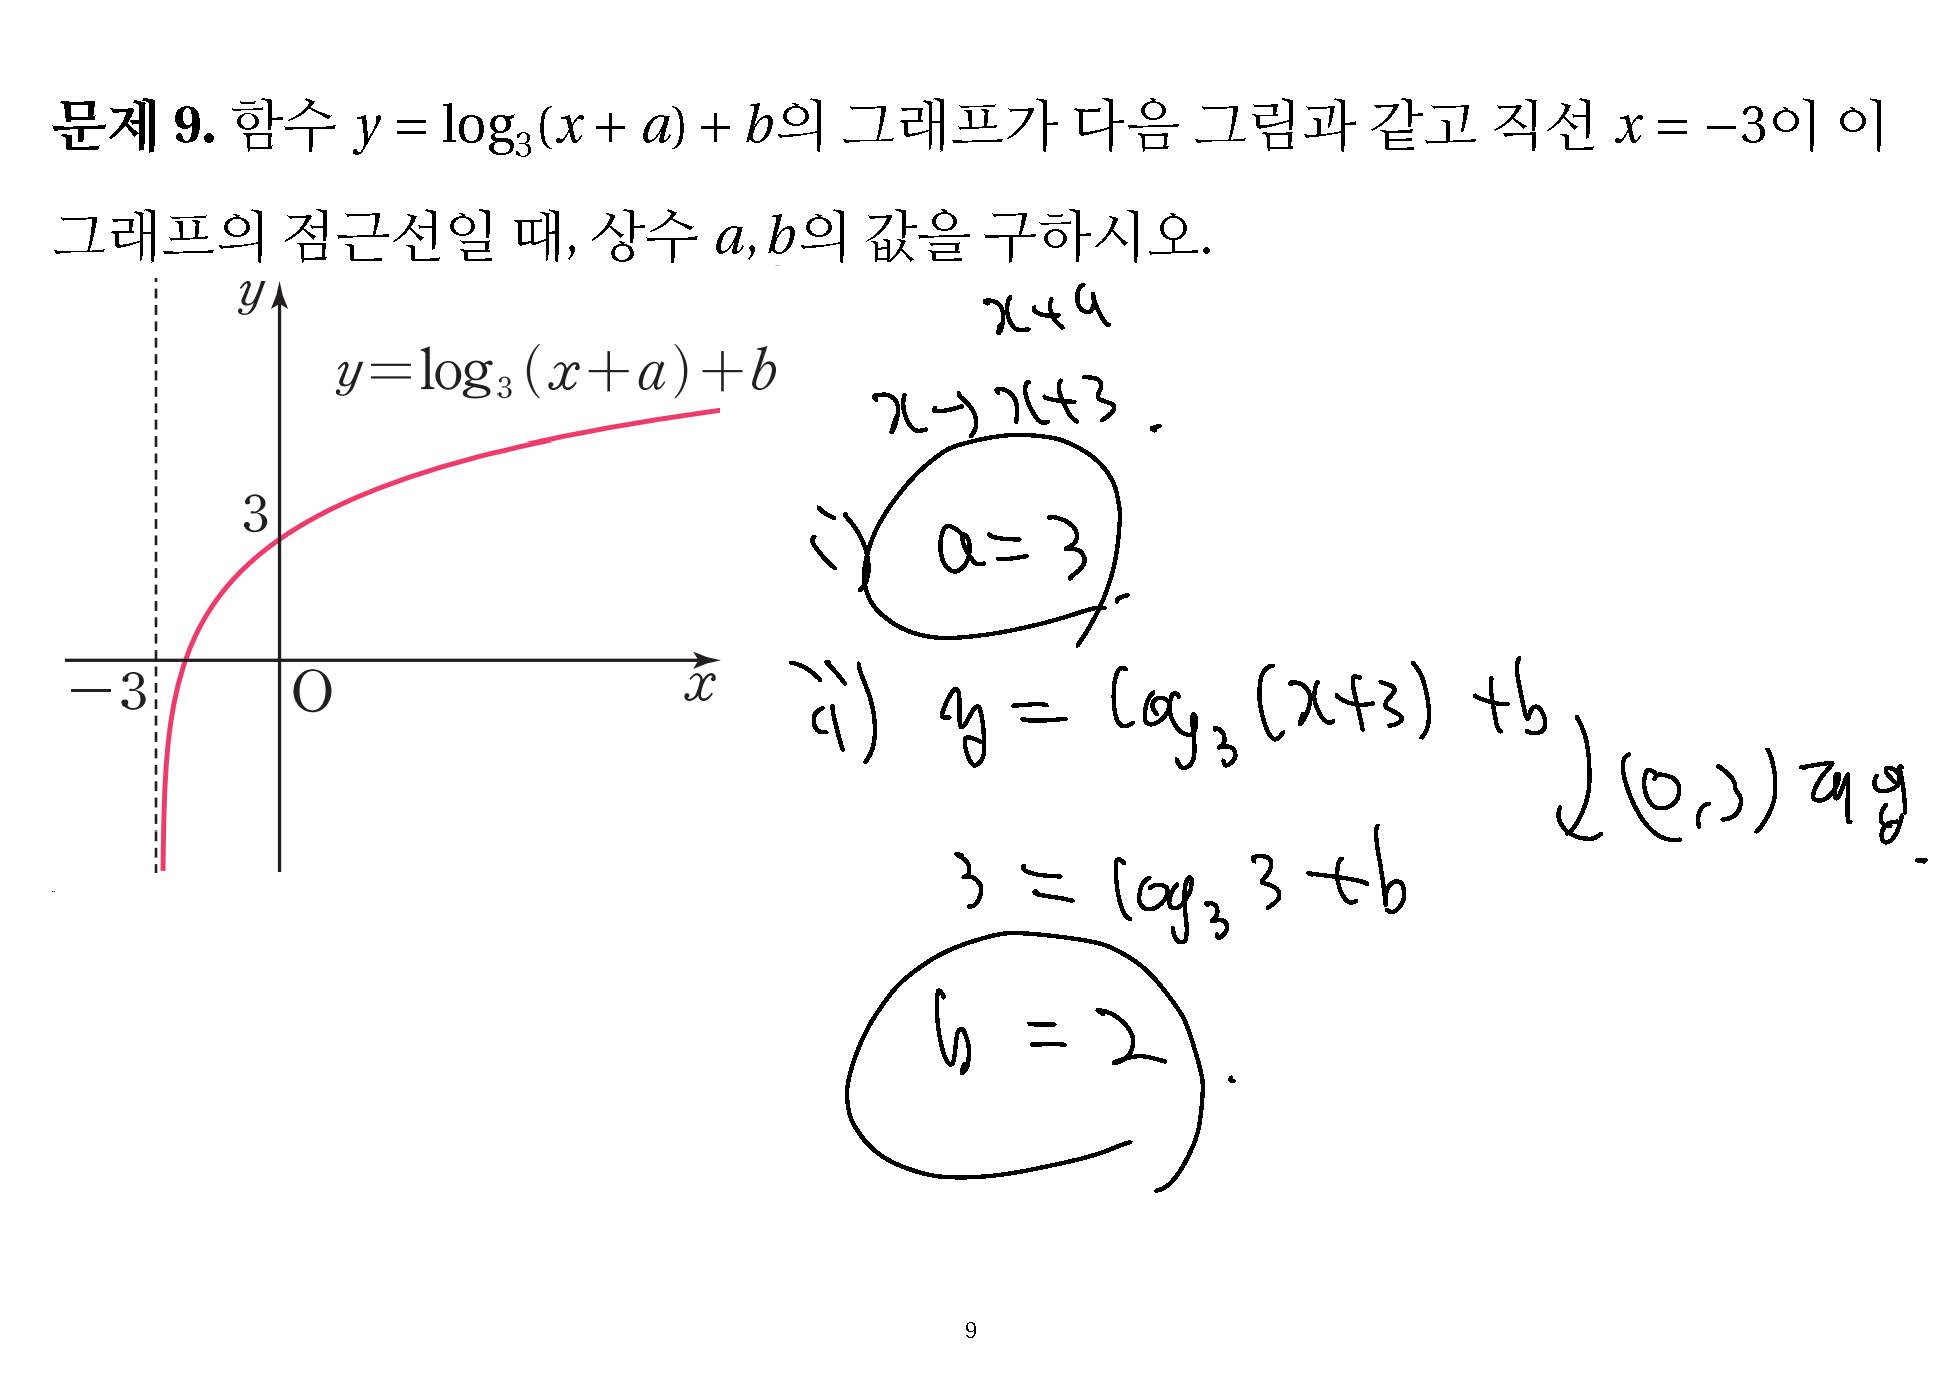 문제 9. 함수 y = log₃(x + a) + b의 그래프가 다음 그림과 같고 직선 x = −3이 이
그래프의 점근선일 때, 상수 a, b의 값을 구하시오.
y
y=log₃(x+a)+b
3
−3
O
x
x+a
x→x+3.
i) a=3
ii) y = log₃(x+3) +b
(0,3) 대입
3 = log₃3+b
b = 2.
9